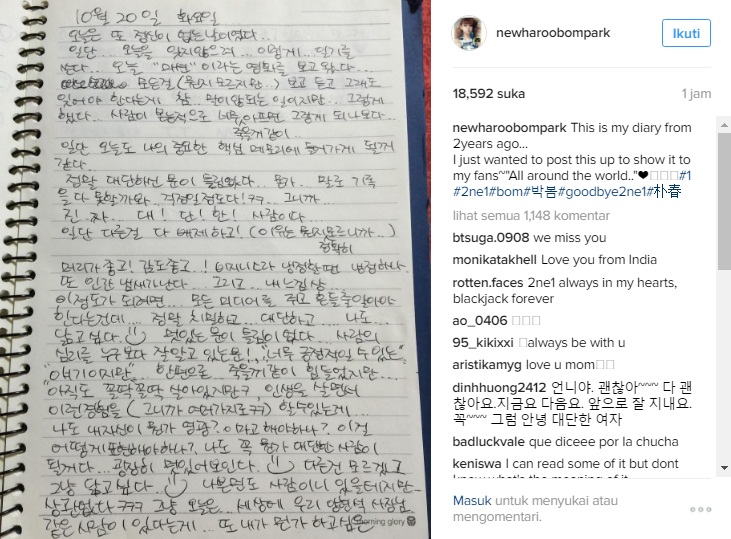 10월 20일 화요일
오늘은 또 정신이 없는 날이었다...
일단... 오늘을 잊지않으려... 이렇게... 일기를
쓴다... 오늘 이라는 영화를 보고 왔다...
모든걸 보고 듣고 그래도
있어야 한다는게 참... 말이 안되는 일이지만... 그렇게
했다... 사람이 너무 아프면 그렇게 되나보다...
죽을거같이..
일단 오늘도 나의 중요한 핵심 메모리에 들어가게 될꺼
같다...
정말 대단하신 분이 들림없다... 뭔가... 말로 기록
을 다 못할까와.. 걱정일정도다!ㅋㅋ.. 그니까...
진.짜... 대! 단! 한! 사람이다...
일단 다른걸 다 배제하고! (이유는 뭔지 모르니까...)
정확히
머리가 좋고! 감도좋고..! 냉정할땐 냉정하나
또 인간 냄새가난다... 그리고... 내 느낌상
이정도가 되려면... 모든 미디어를 쥐고 흔들줄알아야
한다는건데... 정말 치밀하고... 대단하고... 나도..
닮고싶다.. 멋있는 분이 틀림이 없다... 사람의
심리를 누구보다 잘 알고 있는분! "너무 긍정적일 수 있는"
"얘기이지만" 한편으론 죽을거같이 힘들었지만...
아직도 꼴딱꼴딱 살아있지만ㅋ, 인생을 살면서
이런경험을 (그니까 여러가지로ㅋㅋ) 할수있는게...
나도 내자신이 뭔가 영광? 이라고 해야하나?. 이걸
어떻게 표현해야하나?. 나도 꼭 뭔가 대단한 사람이
될꺼다... 굉장히 멋있어보인다. 다른건 모르겠고
그냥 닮고싶다.. 나쁜면도 사람이니 있을테지만..
상관없다ㅋㅋㅋ 그냥 오늘은... 세상에 우리 사장님
같은 사람이 있다는게... 또 내가 뭔가 하고싶은
morning glory
newharoobompark
Ikuti
18,592 suka
1 jam
newharoobompark This is my diary from
2years ago...
I just wanted to post this up to show it to
my fans~"All around the world.."❤□□□#1
#2ne1#bom#박봄#goodbye2ne1#朴春
lihat semua 1,148 komentar
btsuga.0908 we miss you
monikatakhell Love you from India
rotten.faces 2ne1 always in my hearts,
blackjack forever
ao_0406 □□□
95_kikixxi □always be with u
aristikamyg love u mom□□
dinhhuong2412 언니야. 괜찮아~~~ 다 괜
찮아요.지금요 다음요. 앞으로 잘 지내요.
꼭~~~ 그럼 안녕 대단한 여자
badluckvale que diceee por la chucha
keniswa I can read some of it but dont
know what's the meaning of it
Masuk untuk menyukai atau
mengomentari.